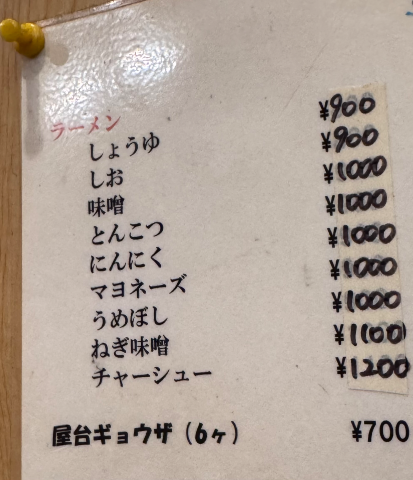 ラーメン
しょうゆ ¥900
しお ¥900
味噌 ¥1000
とんこつ ¥1000
にんにく ¥1000
マヨネーズ ¥1000
うめぼし ¥1000
ねぎ味噌 ¥1100
チャーシュー ¥1200
屋台ギョウザ（6ヶ） ¥700